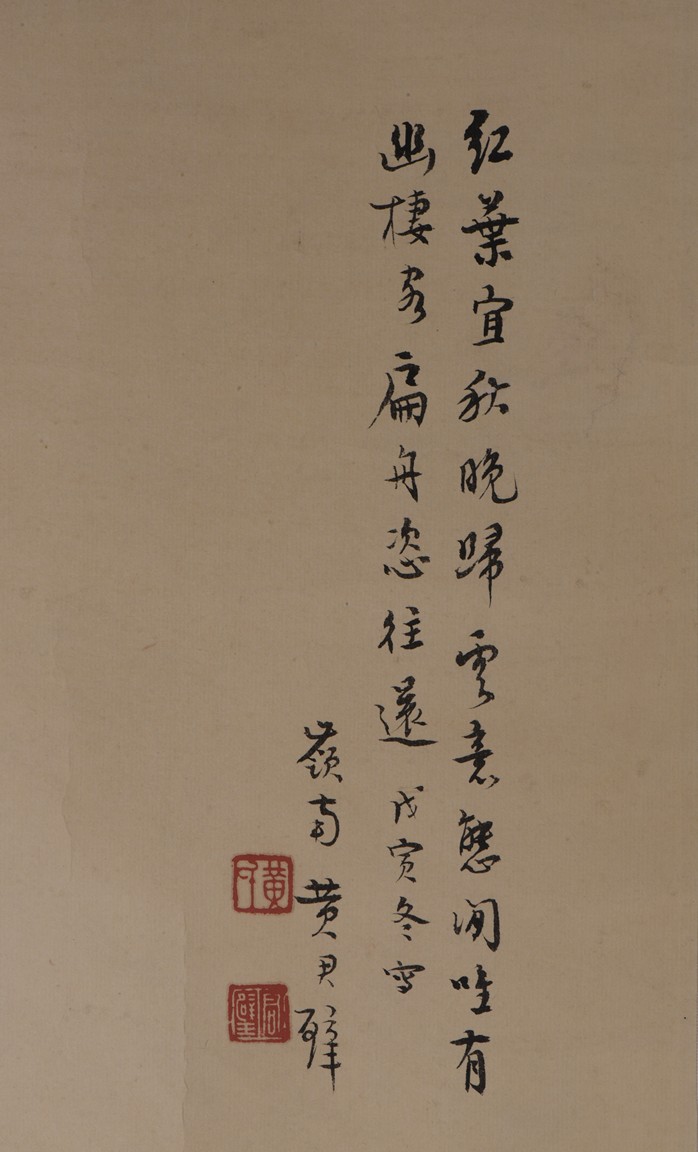 紅葉宜秋晚歸雲意態閒唯有
幽棲客扁舟恣往還 戊寅冬寫
嶺南黃君璧
黃
君璧